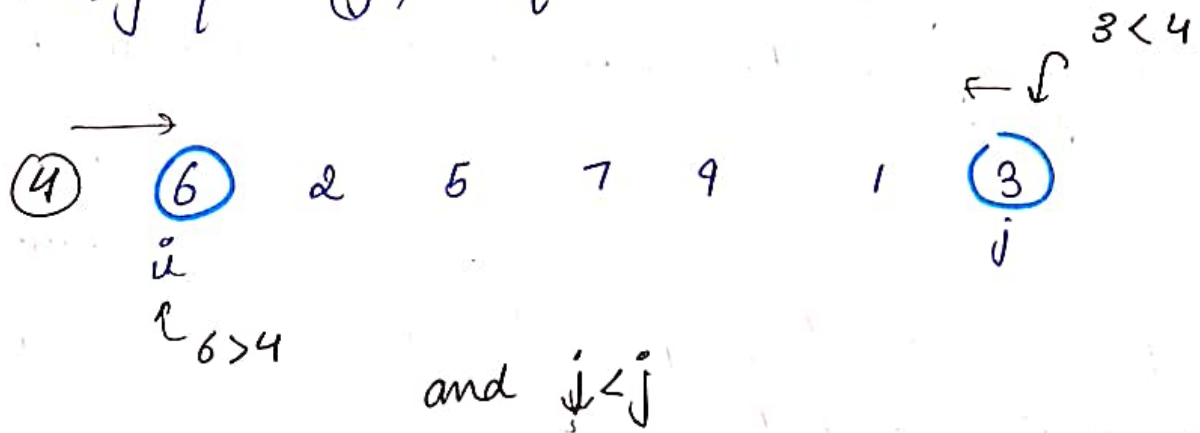 3 < 4
4 6 2 5 7 9 1 3
i j
6 > 4
and i < j